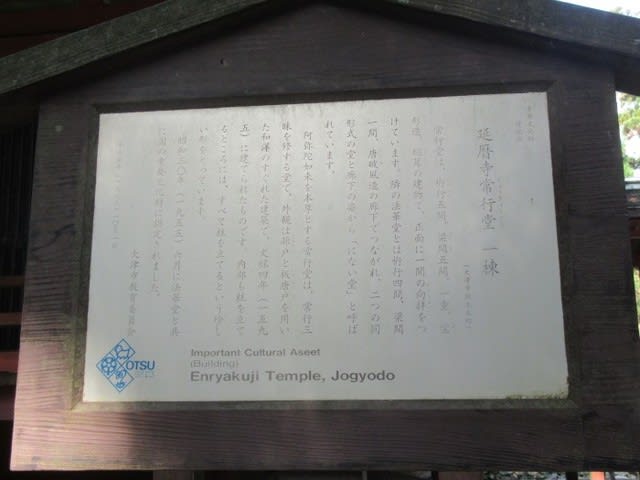 重要文化財
延暦寺常行堂 一棟
常行堂は、桁行五間、梁間五間、一重、宝
形造、栩葺の建物で、正面に一間の向拝をつ
けています。隣の法華堂とは桁行四間、梁間
一間、唐破風造の廊下でつながれ、二つの同
形式の堂と廊下の姿から「にない堂」と呼ば
れています。
阿弥陀如来を本尊とする常行堂は、常行三
昧を修する堂で、外観は蔀戸と板唐戸を用い
た和様のすぐれた建築で、文禄四年(一五九
五)に建てられたものです。内部も柱を立て
るところには、すべて柱を立てるという珍し
い形をとっています。
昭和三〇年(一九五五)六月に法華堂と共
に国の重要文化財に指定されました。
大津市教育委員会
OTSU
Important Cultural Aseet
(Building)
Enryakuji Temple, Jogyodo